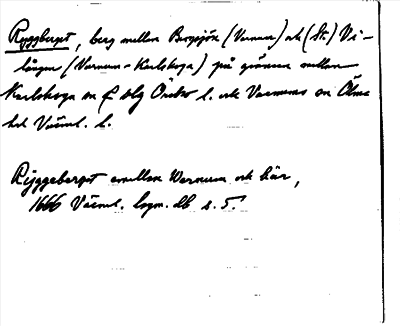 Ryggberget, berg mellan Bergsjön (Varnum) och (St.) Vi-
lången (Varnum - Karlskoga) på gränsen mellan
Karlskoga sn o. blg Örebro l. och Varnums sn Ölme
hd Värml. l.
Rijggeberget emellan Wernum och här,
1666 Värml. lagm. db s. 5